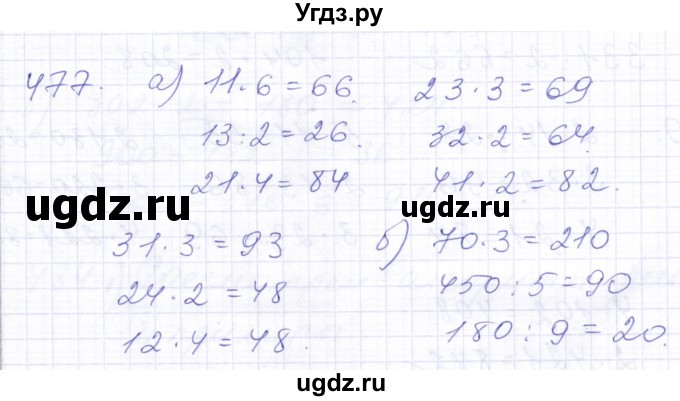 Угдз.ру
477. а) 11·6=66. 23·3=69
13:2=26. 32·2=64.
21·4=84 41·2=82.
ugdz.ru ugdz.ru
31·3=93 б) 70·3=210
24·2=48 450:5=90
12·4=48. 180:9=20.
ugdz.ru